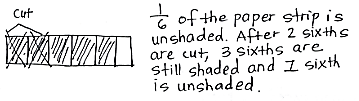 Cut
1/6 of the paper strip is
unshaded. After 2 sixths
are cut, 3 sixths are
still shaded and 1 sixth
is unshaded.